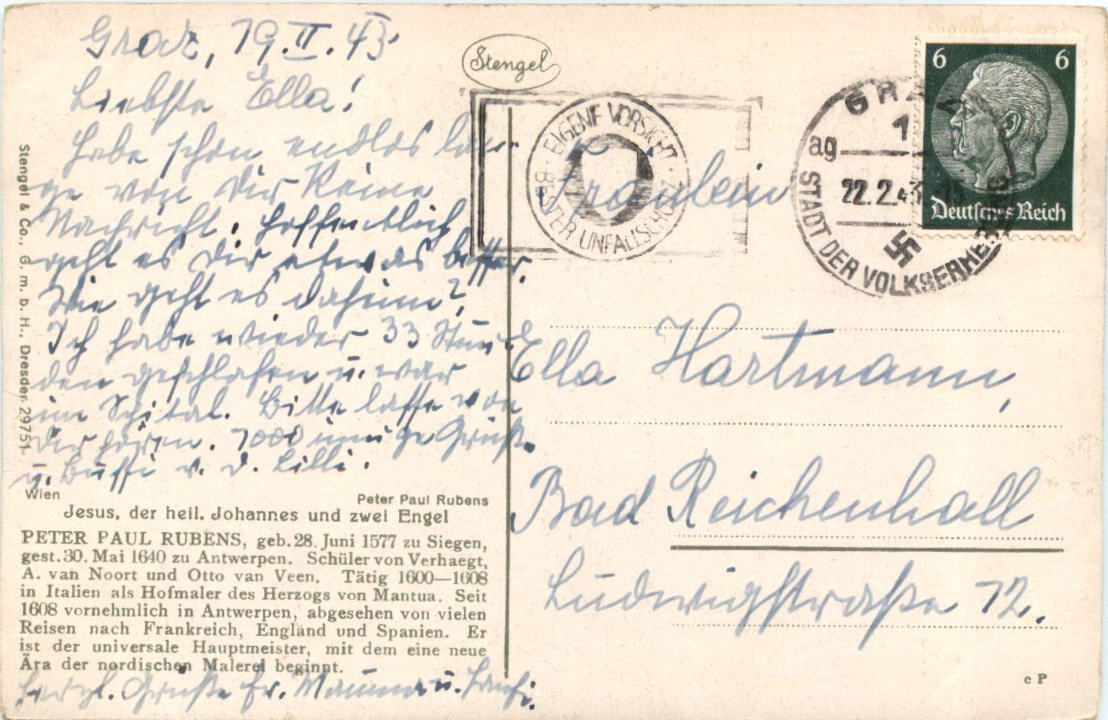 Graz, 19.II.43.
Liebste Ella!
Habe schon endlos lan-
ge von Dir keine
Nachricht. Hoffentlich
geht es Dir etwas besser.
Wie geht es daheim?
Ich habe wieder 33 Stun-
den geschlafen u. war
im Spital. Bitte lasse von
Dir hören. 1000 innige Grüße
u. Bussi v. d. Lilli.
Wien
Peter Paul Rubens
Jesus, der heil. Johannes und zwei Engel
PETER PAUL RUBENS, geb. 28. Juni 1577 zu Siegen,
gest. 30. Mai 1640 zu Antwerpen. Schüler von Verhaegt,
A. van Noort und Otto van Veen. Tätig 1600—1608
in Italien als Hofmaler des Herzogs von Mantua. Seit
1608 vornehmlich in Antwerpen, abgesehen von vielen
Reisen nach Frankreich, England und Spanien. Er
ist der universale Hauptmeister, mit dem eine neue
Ära der nordischen Malerei beginnt.
Herzl. Grüße Fr. Mamma u. Hansi.
Stengel & Co., G. m. b. H., Dresden 29751
Stengel
EIGENE VORSICHT · BESTER UNFALLSCHUTZ
GRAZ
1
ag
22.2.43
STADT DER VOLKSERHEBUNG
6 6
Deutsches Reich
Fräulein
Ella Hartmann,
Bad Reichenhall
Ludwigstraße 12.
c P